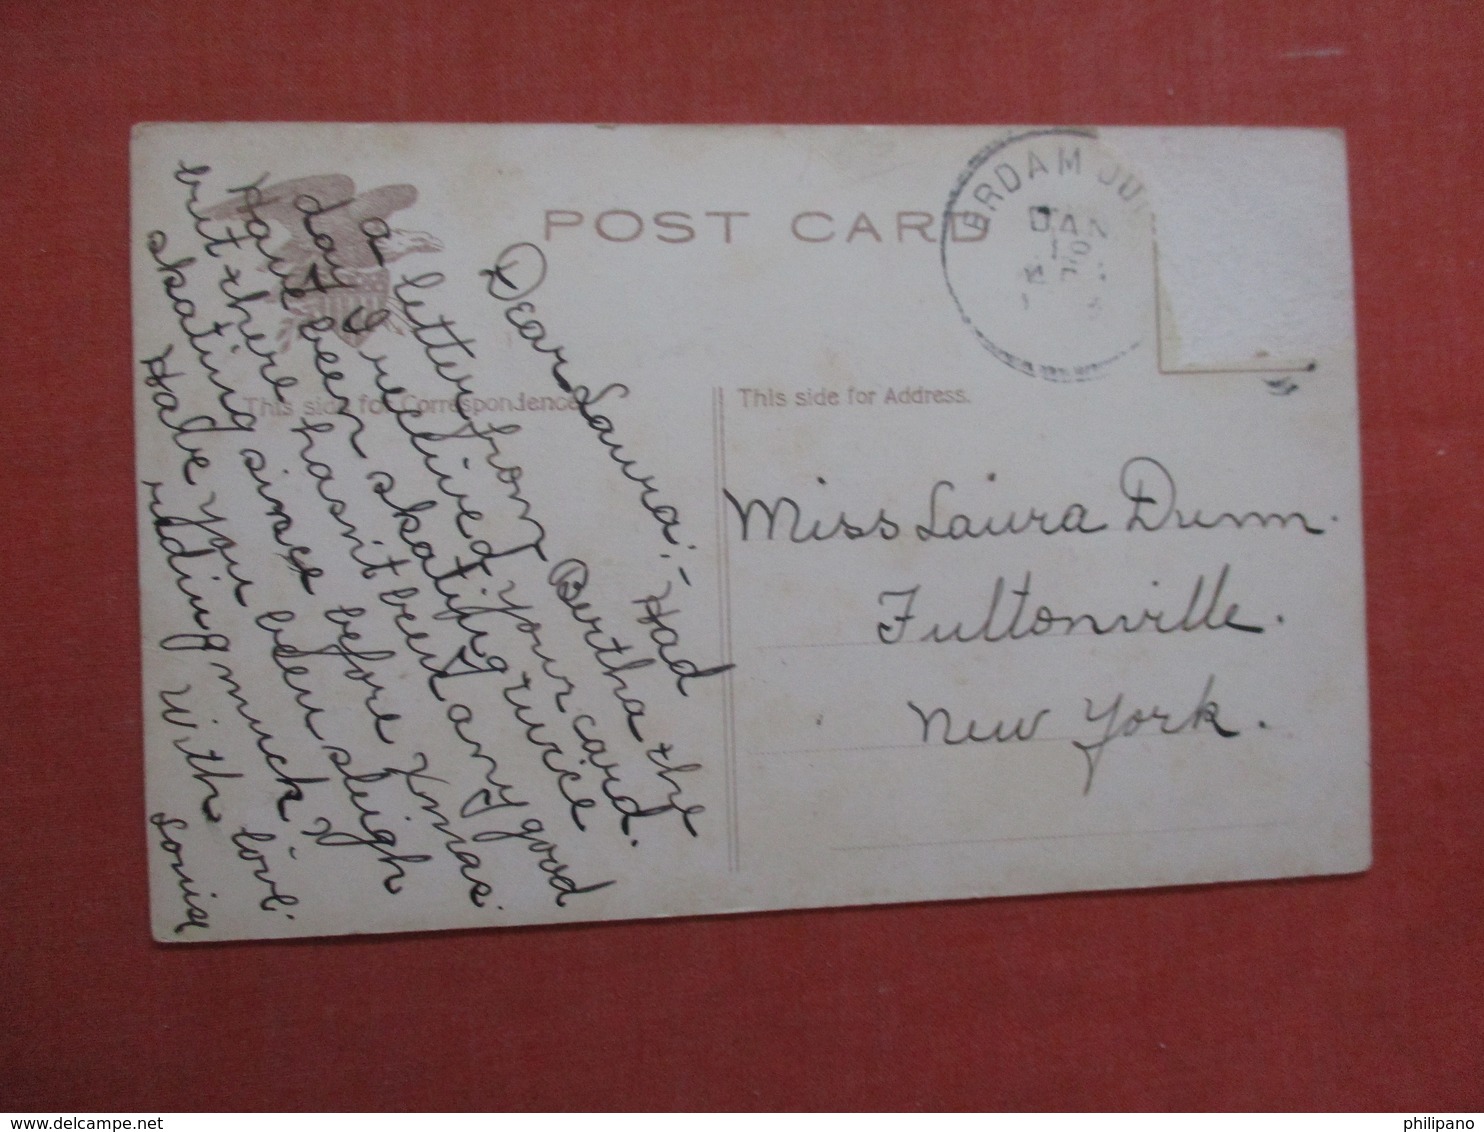 POST CARD
ERDAM JU
JAN
10
This side for Correspondence
This side for Address.
Dear Laura:- Had
a letter from Bertha the
day I recieved your card.
Have been skating twice
but there hasn't been any good
skating since before Xmas.
Have you been sleigh
reding much?
With love.
Louisa
Miss Laura Dunn.
Fultonville.
New York.
philipano